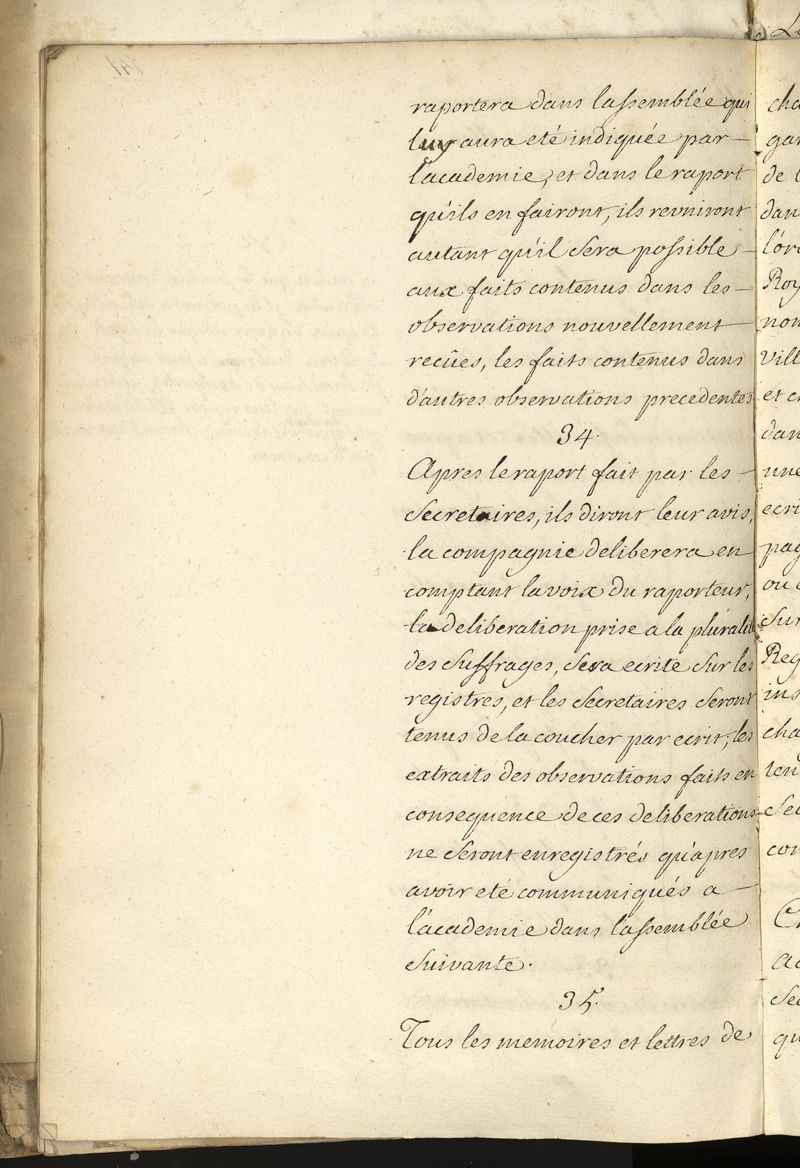 raportera dans l'assemblée qui
leur aura eté indiquée par
l'academie, et dans le raport
qu'ils en fairont, ils reuniront
autant qu'il sera possible
aux faits contenus dans les
observations nouvellement
recûes, les faits contenus dans
d'autres observations precedentes
34.
Apres le raport fait par les
secretaires, ils diront leur avis,
la compagnie deliberera en
comptant la voix du raporteur,
la deliberation prise a la pluralité
des suffrages, sera ecrite sur les
registres, et les secretaires seront
tenus de la coucher par ecrit, les
extraits des observations faits en
consequence de ces deliberations
ne seront enregistrés qu'apres
avoir eté communiqués a
l'academie dans l'assemblée
suivante.
35.
Tous les memoires et lettres de